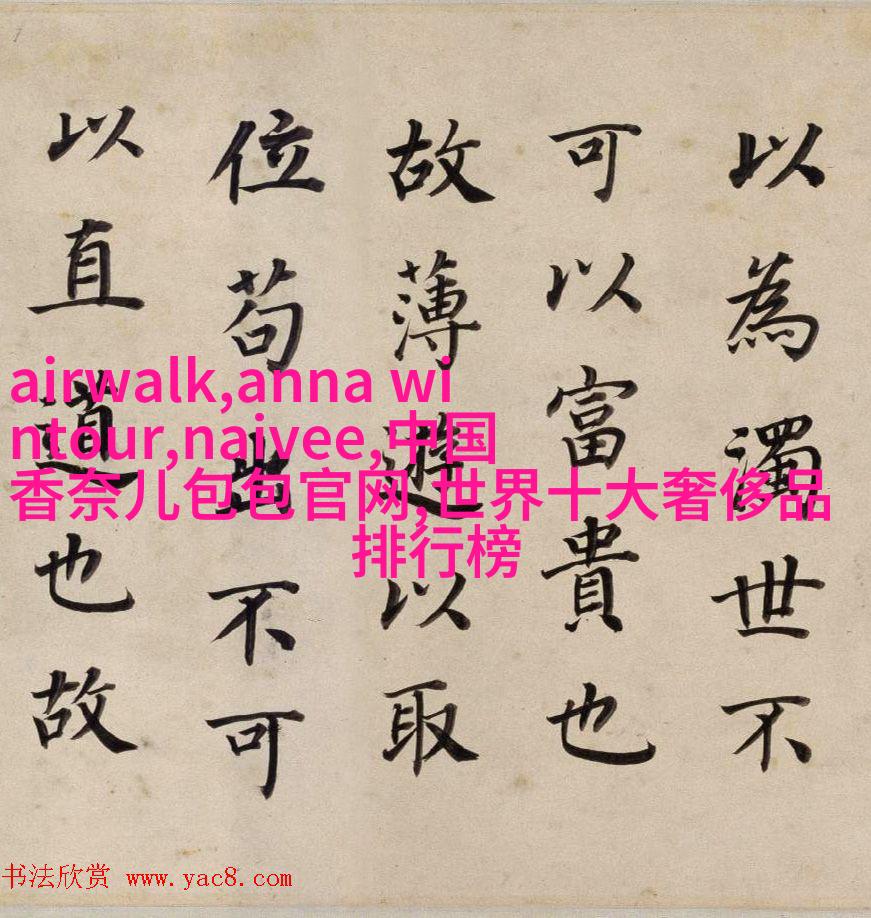 以為濁世不
可以富貴也
故薄遊以取
位苟出不可
以直道也故
airwalk,anna wi
ntour,naivee,中国
香奈儿包包官网,世界十大奢侈品
排行榜
书法欣赏 www.yac8.com